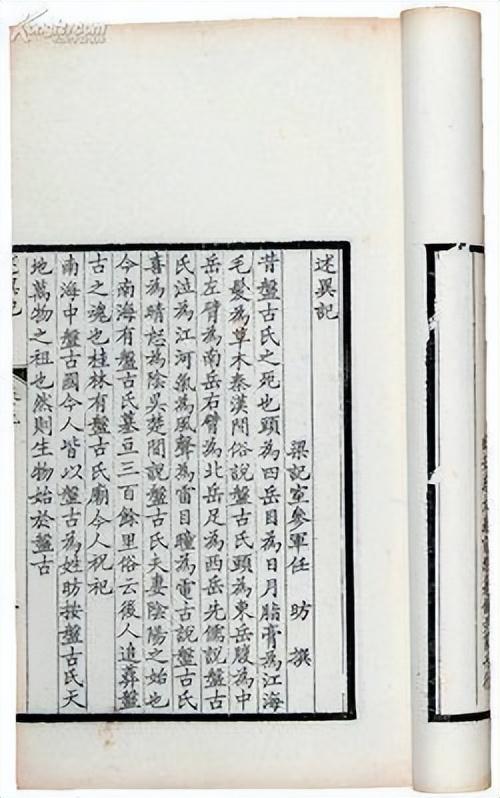 述異記
梁記室參軍任 昉 撰
昔盤古氏之死也頭為四岳目為日月脂膏為江海
毛髮為草木秦漢間俗說盤古氏頭為東岳腹為中
岳左臂為南岳右臂為北岳足為西岳先儒說盤古
氏泣為江河氣為風聲為雷目瞳為電古說盤古氏
喜為晴怒為陰吳楚間說盤古氏夫妻陰陽之始也
今南海有盤古氏墓豆三百餘里俗云後人追葬盤
古之魂也桂林有盤古氏廟今人祝祀
南海中盤古國今人皆以盤古為姓昉按盤古氏天
地萬物之祖也然則生物始於盤古